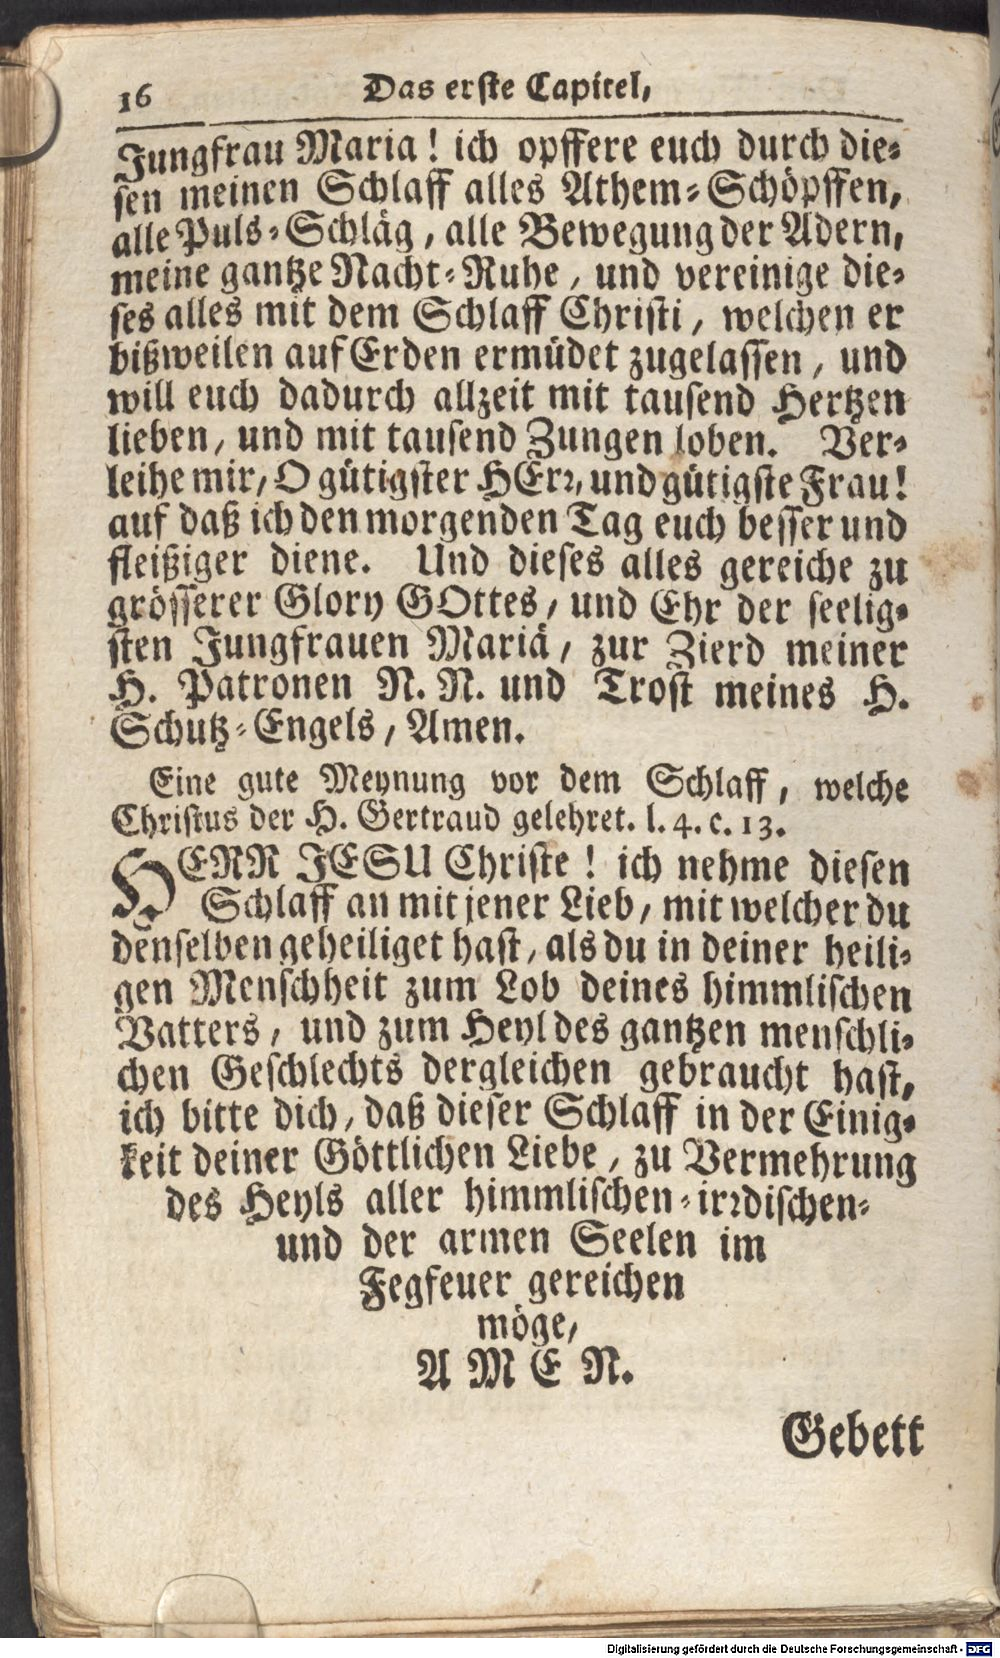 16 Das erste Capitel,
Jungfrau Maria! ich opffere euch durch die-
sen meinen Schlaff alles Athem-Schöpffen,
alle Puls-Schläg, alle Bewegung der Adern,
meine gantze Nacht-Ruhe, und vereinige die-
ses alles mit dem Schlaff Christi, welchen er
bißweilen auf Erden ermüdet zugelassen, und
will euch dadurch allzeit mit tausend Hertzen
lieben, und mit tausend Zungen loben. Ver-
leihe mir, O gütigster HErr, und gütigste Frau!
auf daß ich den morgenden Tag euch besser und
fleißiger diene. Und dieses alles gereiche zu
grösserer Glory GOttes, und Ehr der seelig-
sten Jungfrauen Mariä, zur Zierd meiner
H. Patronen N. N. und Trost meines H.
Schutz-Engels, Amen.
Eine gute Meynung vor dem Schlaff, welche
Christus der H. Gertraud gelehret. l. 4. c. 13.
HERR JESU Christe! ich nehme diesen
Schlaff an mit jener Lieb, mit welcher du
denselben geheiliget hast, als du in deiner heili-
gen Menschheit zum Lob deines himmlischen
Vatters, und zum Heyl des gantzen menschli-
chen Geschlechts dergleichen gebraucht hast,
ich bitte dich, daß dieser Schlaff in der Einig-
keit deiner Göttlichen Liebe, zu Vermehrung
des Heyls aller himmlischen-irrdischen-
und der armen Seelen im
Fegfeuer gereichen
möge,
A M E N.
Gebett
Digitalisierung gefördert durch die Deutsche Forschungsgemeinschaft - DFG